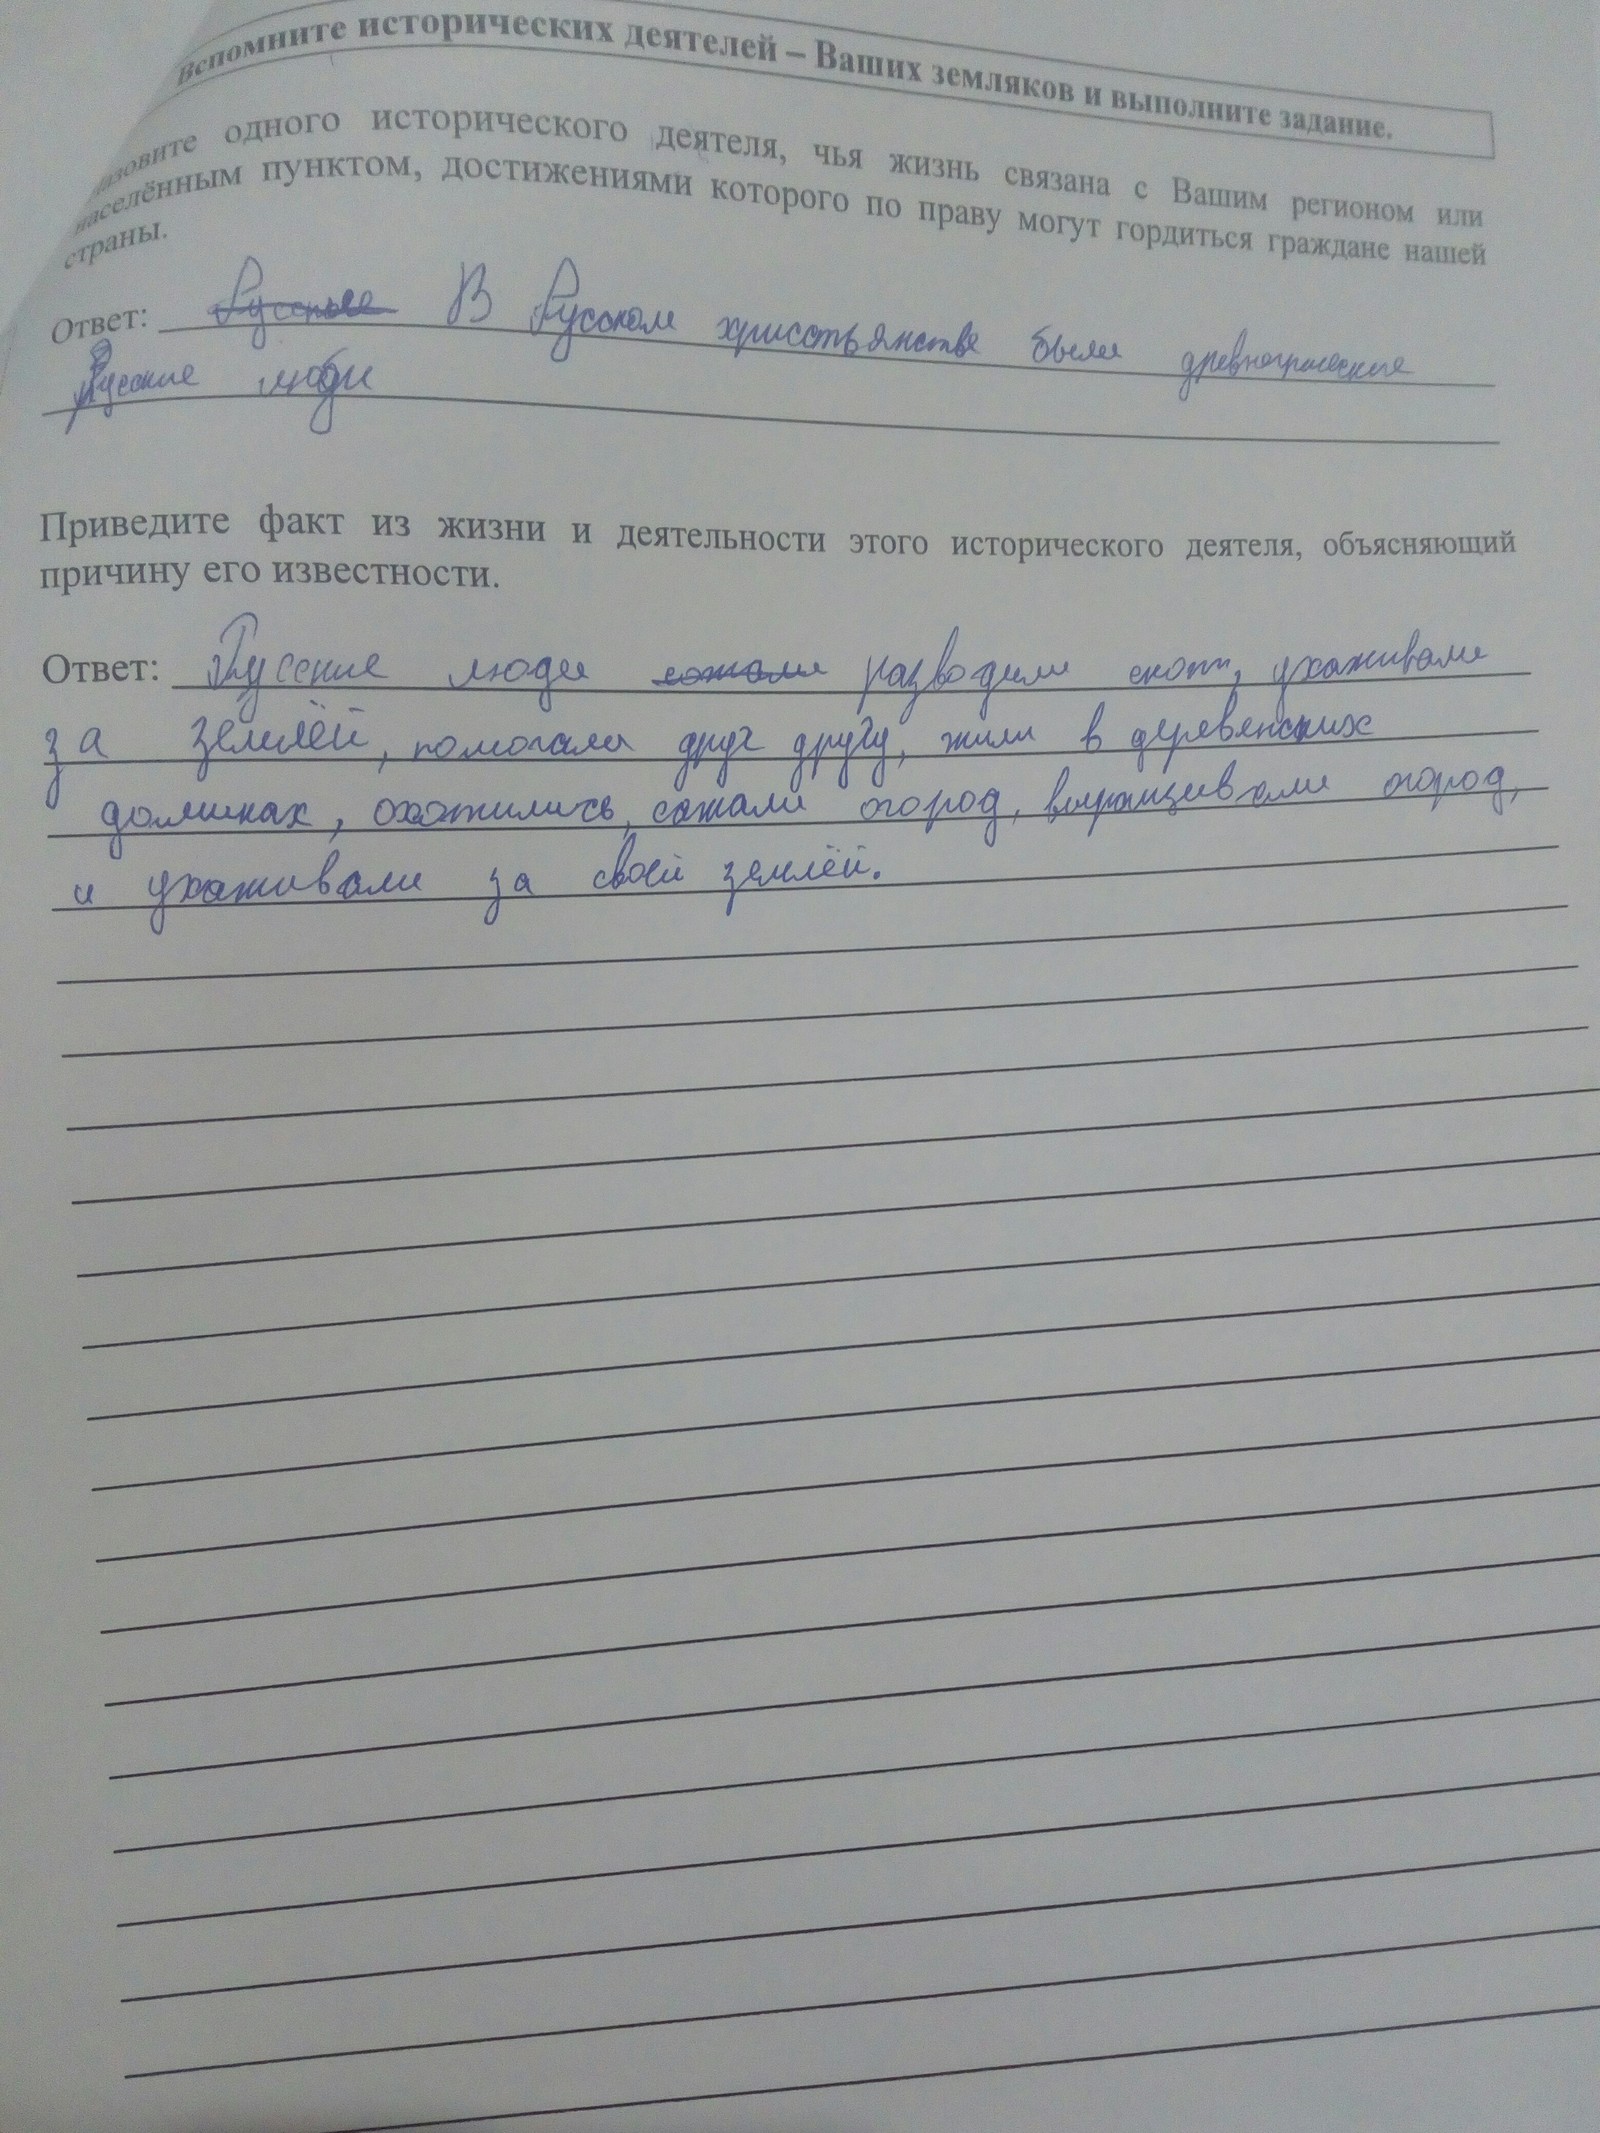 Вспомните исторических деятелей – Ваших земляков и выполните задание.
азовите одного исторического деятеля, чья жизнь связана с Вашим регионом или
населённым пунктом, достижениями которого по праву могут гордиться граждане нашей
страны.
Ответ: Русские В Русском христьянстве были древнегреческие
Русские люди
Приведите факт из жизни и деятельности этого исторического деятеля, объясняющий
причину его известности.
Ответ: Русские люди сажали разводили скот, ухаживали
за землёй, помогали друг другу, жили в деревенских
домиках, охотились, сажали огород, выращивали огород,
и ухаживали за своей землёй.